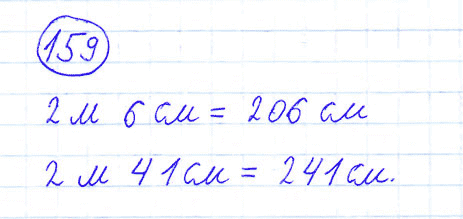 159
2 м 6 см = 206 см
2 м 41 см = 241 см.